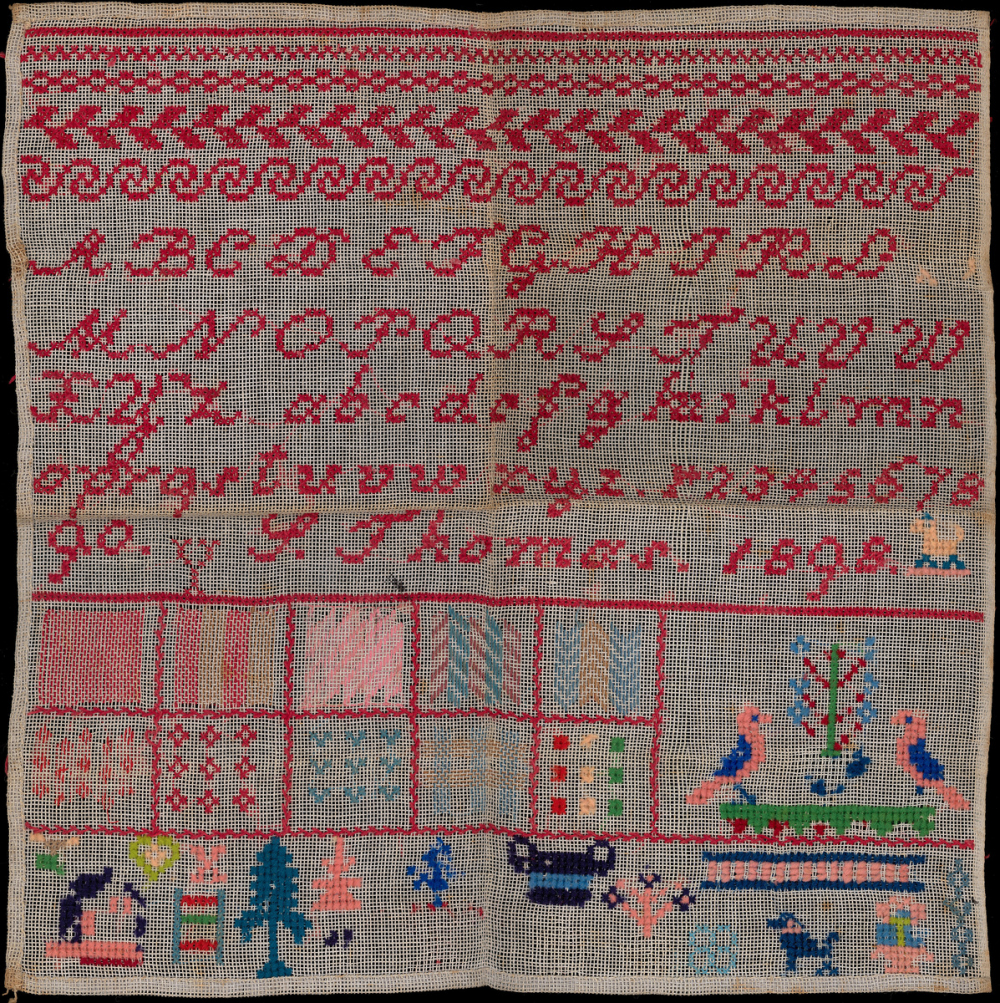 A B C D E F G H I K L
M N O P Q R S T U V W
X Y Z a b c d e f g h i k l m n
o p q r s t u v w x y z . 1 2 3 4 5 6 7 8
9 0 . S. Thomas. 1898.